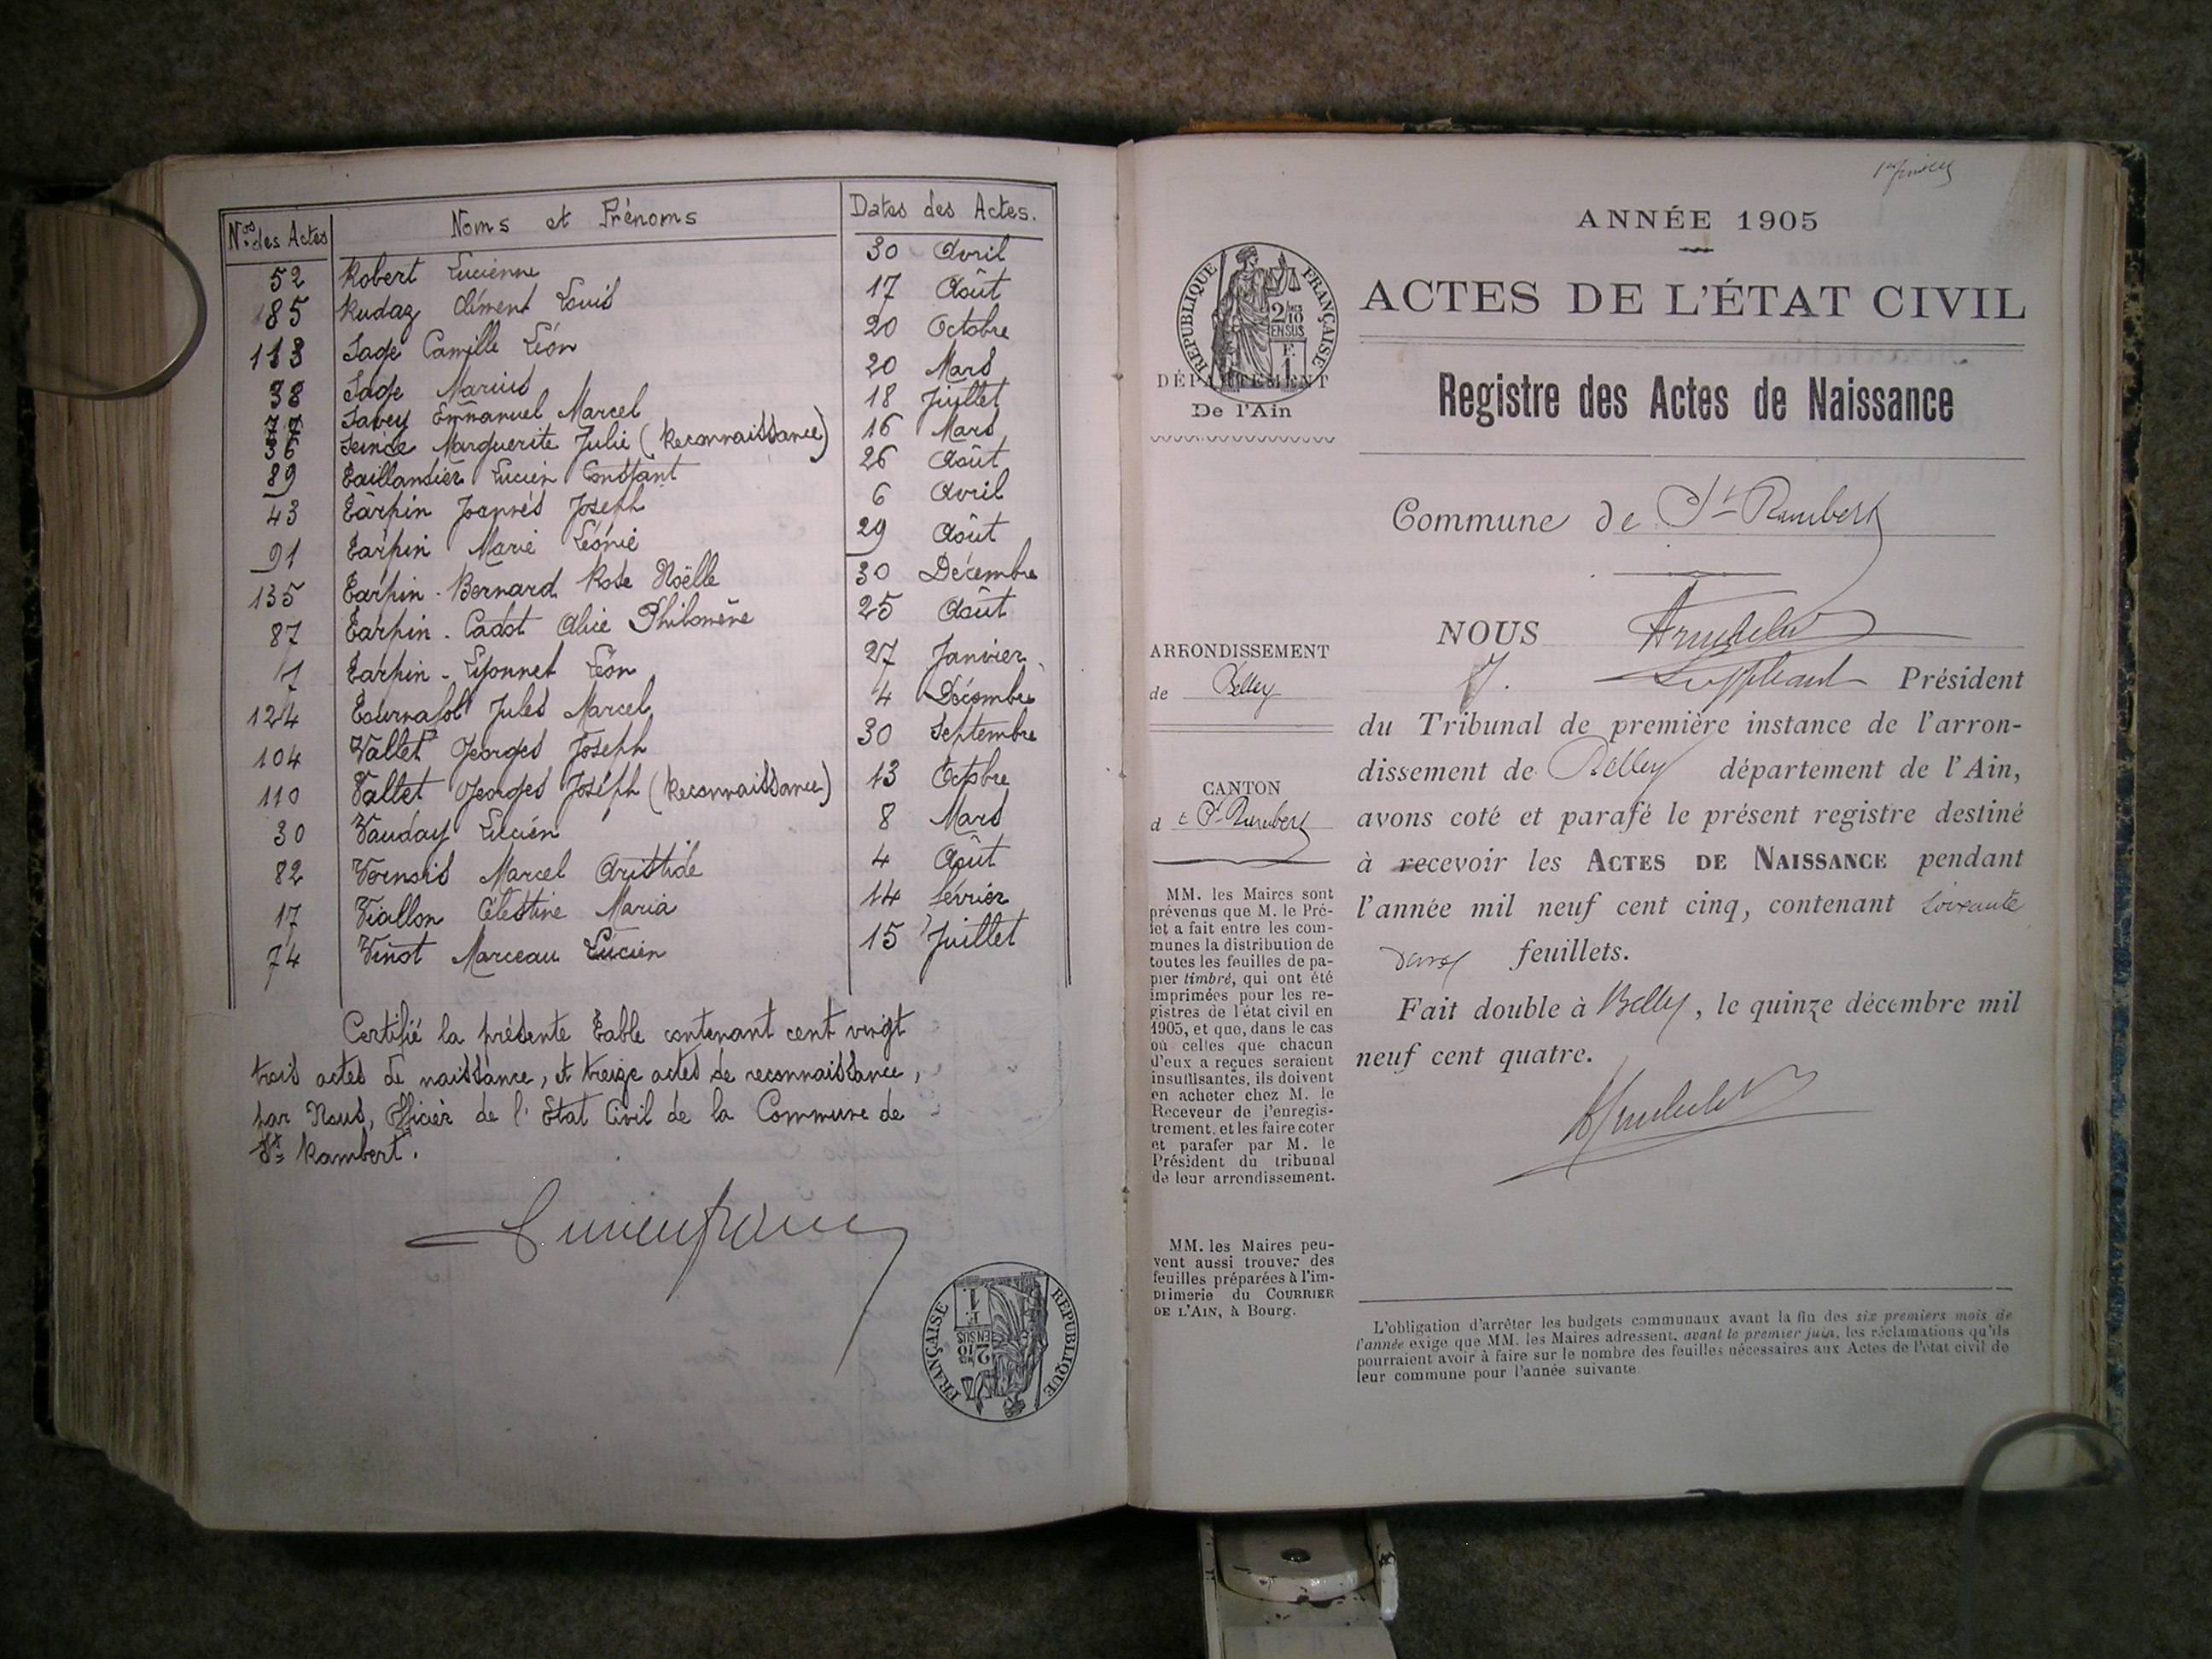 Nos des Actes Noms et Prénoms Dates des Actes.
52 Robert Lucienne 30 Avril
85 Rudaz Clément Louis 17 Août
113 Sage Camille Léon 20 Octobre
38 Sage Marius 20 Mars
77 Savey Emmanuel Marcel 18 Juillet
36 Marguerite Julie (Reconnaissance) 16 Mars
89 Taillandier Lucien Constant 26 Août
43 Tarpin Joannès Joseph 6 Avril
91 Tarpin Marie Léonie 29 Août
135 Tarpin - Bernard Rose Noëlle 30 Décembre
87 Tarpin - Cadot Alice Philomène 25 Août
7 Tarpin - Lyonnet Léon 27 Janvier
124 Tournafol Jules Marcel 4 Décembre
104 Vallet Georges Joseph 30 Septembre
110 Vallet Georges Joseph (Reconnaissance) 13 Octobre
30 Vauday Lucien 8 Mars
82 Vernois Marcel Aristide 4 Août
17 Viallon Célestine Maria 14 février
74 Vinot Marceau Lucien 15 Juillet
Certifié la présente Table contenant cent vingt
trois actes de naissance, et treize actes de reconnaissance,
par Nous, Officier de l'Etat Civil de la Commune de
St Rambert.
RÉPUBLIQUE FRANÇAISE
2/10 EN SUS
F. 1
ANNÉE 1905
ACTES DE L'ÉTAT CIVIL
Registre des Actes de Naissance
RÉPUBLIQUE FRANÇAISE
2/10 EN SUS
F. 1
DÉPARTEMENT
De l'Ain
Commune de St Rambert
ARRONDISSEMENT
de Belley
CANTON
de St Rambert
MM. les Maires sont
prévenus que M. le Pré-
fet a fait entre les com-
munes la distribution de
toutes les feuilles de pa-
pier timbré, qui ont été
imprimées pour les re-
gistres de l'état civil en
1905, et que, dans le cas
où celles que chacun
d'eux a reçues seraient
insuffisantes, ils doivent
en acheter chez M. le
Receveur de l'enregis-
trement, et les faire coter
et parafer par M. le
Président du tribunal
de leur arrondissement.
MM. les Maires peu-
vent aussi trouver des
feuilles préparées à l'im-
primerie du COURRIER
DE L'AIN, à Bourg.
NOUS
J. Suppléant Président
du Tribunal de première instance de l'arron-
dissement de Belley département de l'Ain,
avons coté et parafé le présent registre destiné
à recevoir les ACTES DE NAISSANCE pendant
l'année mil neuf cent cinq, contenant soixante
feuillets.
Fait double à Belley, le quinze décembre mil
neuf cent quatre.
L'obligation d'arrêter les budgets communaux avant la fin des six premiers mois de
l'année exige que MM. les Maires adressent, avant le premier juin, les réclamations qu'ils
pourraient avoir à faire sur le nombre des feuilles nécessaires aux Actes de l'état civil de
leur commune pour l'année suivante.